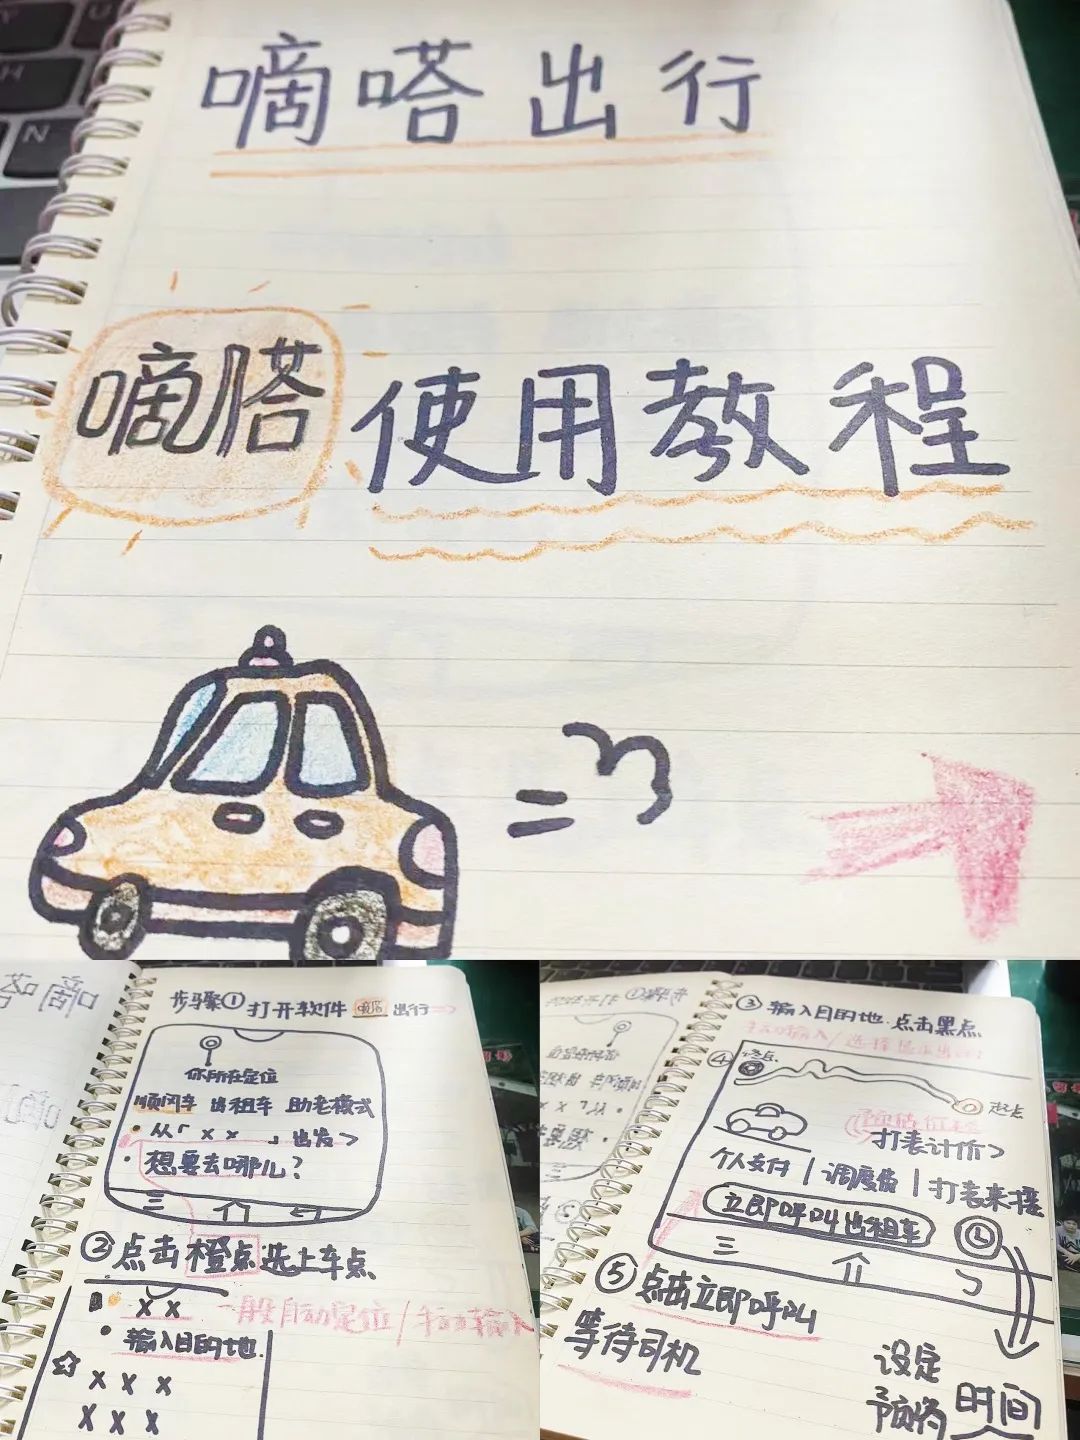 嘀嗒出行
嘀嗒使用教程
步骤① 打开软件 嘀嗒 出行
你所在定位
顺风车 出租车 助老模式
• 从「 x x 」出发 >
• 想要去哪儿?
② 点击橙点选上车点
一般自动定位/手动输入
x x
• 输入目的地.
x x x
x x x
③ 输入目的地.点击黑点
④
起点
打表计价>
个人支付 | 调度费 | 打表来接
立即呼叫出租车
⑤ 点击立即呼叫
等待司机
设定
预约时间